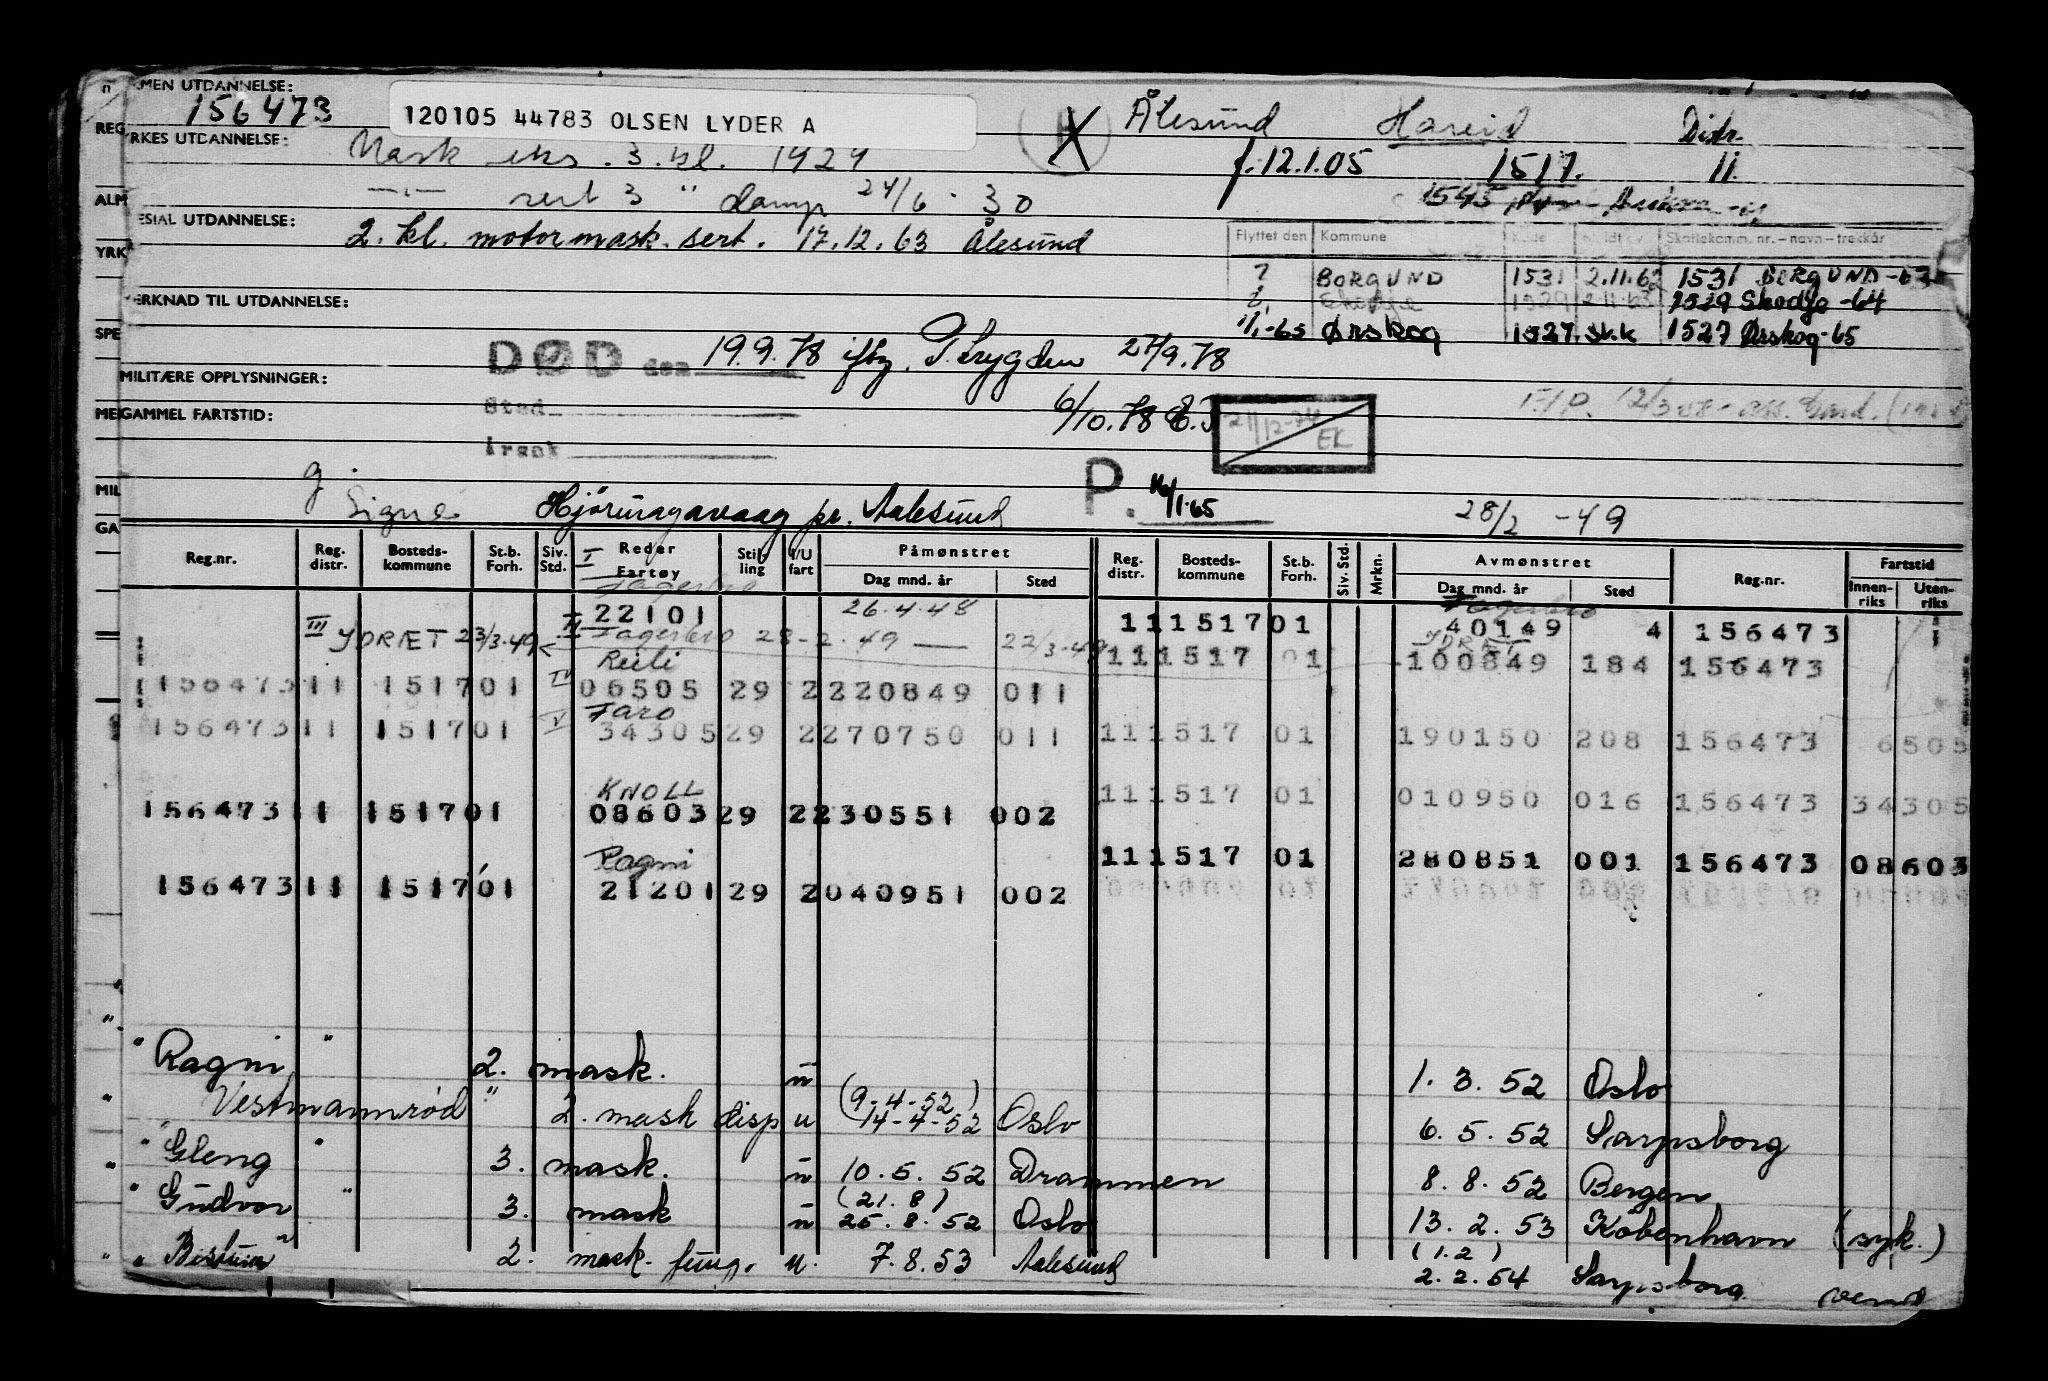 MEN UTDANNELSE:
156473
120105 44783 OLSEN LYDER A
Ålesund Hareid Distr.
REG
RKES UTDANNELSE:
Mask eks. 3. kl. 1929
f. 12.1.05 1517. 11.
ALM
sert 3 " damp 24/6 - 30
1545
ESIAL UTDANNELSE:
2. kl. motormask. sert. 17.12.63 Ålesund
Flyttet den Kommune Skattekomm. nr. – navn – treckår
YRK
? BORGUND 1531 2.11.62 1531 BORGUND-63
ERKNAD TIL UTDANNELSE:
Skodje 1529 2.11.63 1529 Skodje -64
SPE
1/1-65 Ørskog 1527 sk.k 1527 Ørskog-65
DØD den 19.9.78 ifkg. T.trygden 27/9.78
MILITÆRE OPPLYSNINGER:
6/10.78
Sted
21/12-74 EK
GAMMEL FARTSTID:
Årsak
g.
MIL
P. 1/1.65
Signe Hjørungavaag pr. Aalesund
28/2 -49
GA
Reg.nr. Reg. distr. Bosteds-kommune St.b. Forh. Siv. Std. Reder Fartøy Stil-ling I/U fart Påmønstret Dag mnd. år Sted Reg. distr. Bosteds-kommune St.b. Forh. Siv. Std. Mrkn. Avmønstret Dag mnd. år Sted Reg.nr. Fartstid Innen-riks Uten-riks
I Fagerbro
22101 26.4.48 11 1517 01 Fagerbro 40149 4 156473
III YDRÆT 23/3.49 II Fagerbro 28-2.49 — 22/3-49
11 1517 01 100849 184 156473
Reili
156473 11 1517 01 IV 06505 29 2 220849 011
Faro
156473 11 1517 01 V 34305 29 2 270750 011 11 1517 01 190150 208 156473 6505
KNOLL
11 1517 01 010950 016 156473 34305
156473 11 1517 01 08603 29 2 230551 002
Ragni
11 1517 01 280851 001 156473 08603
156473 11 1517 01 21201 29 2 040951 002
" Ragni " 2. mask. u 1. 3. 52 Oslo
Vestmannrød " 2. mask disp u (9-4-52) 14-4-52 Oslo 6. 5. 52 Sarpsborg
" Gleng " 3. mask. u 10. 5. 52 Drammen 8. 8. 52 Bergen
" Gudvor " 3. mask u (21. 8) 25. 8. 52 Oslo 13. 2. 53 København (syk.)
" Bestum " 2. mask. fung. u. 7. 8. 53 Aalesund (1.2) 2. 2. 54 Sarpsborg
vend